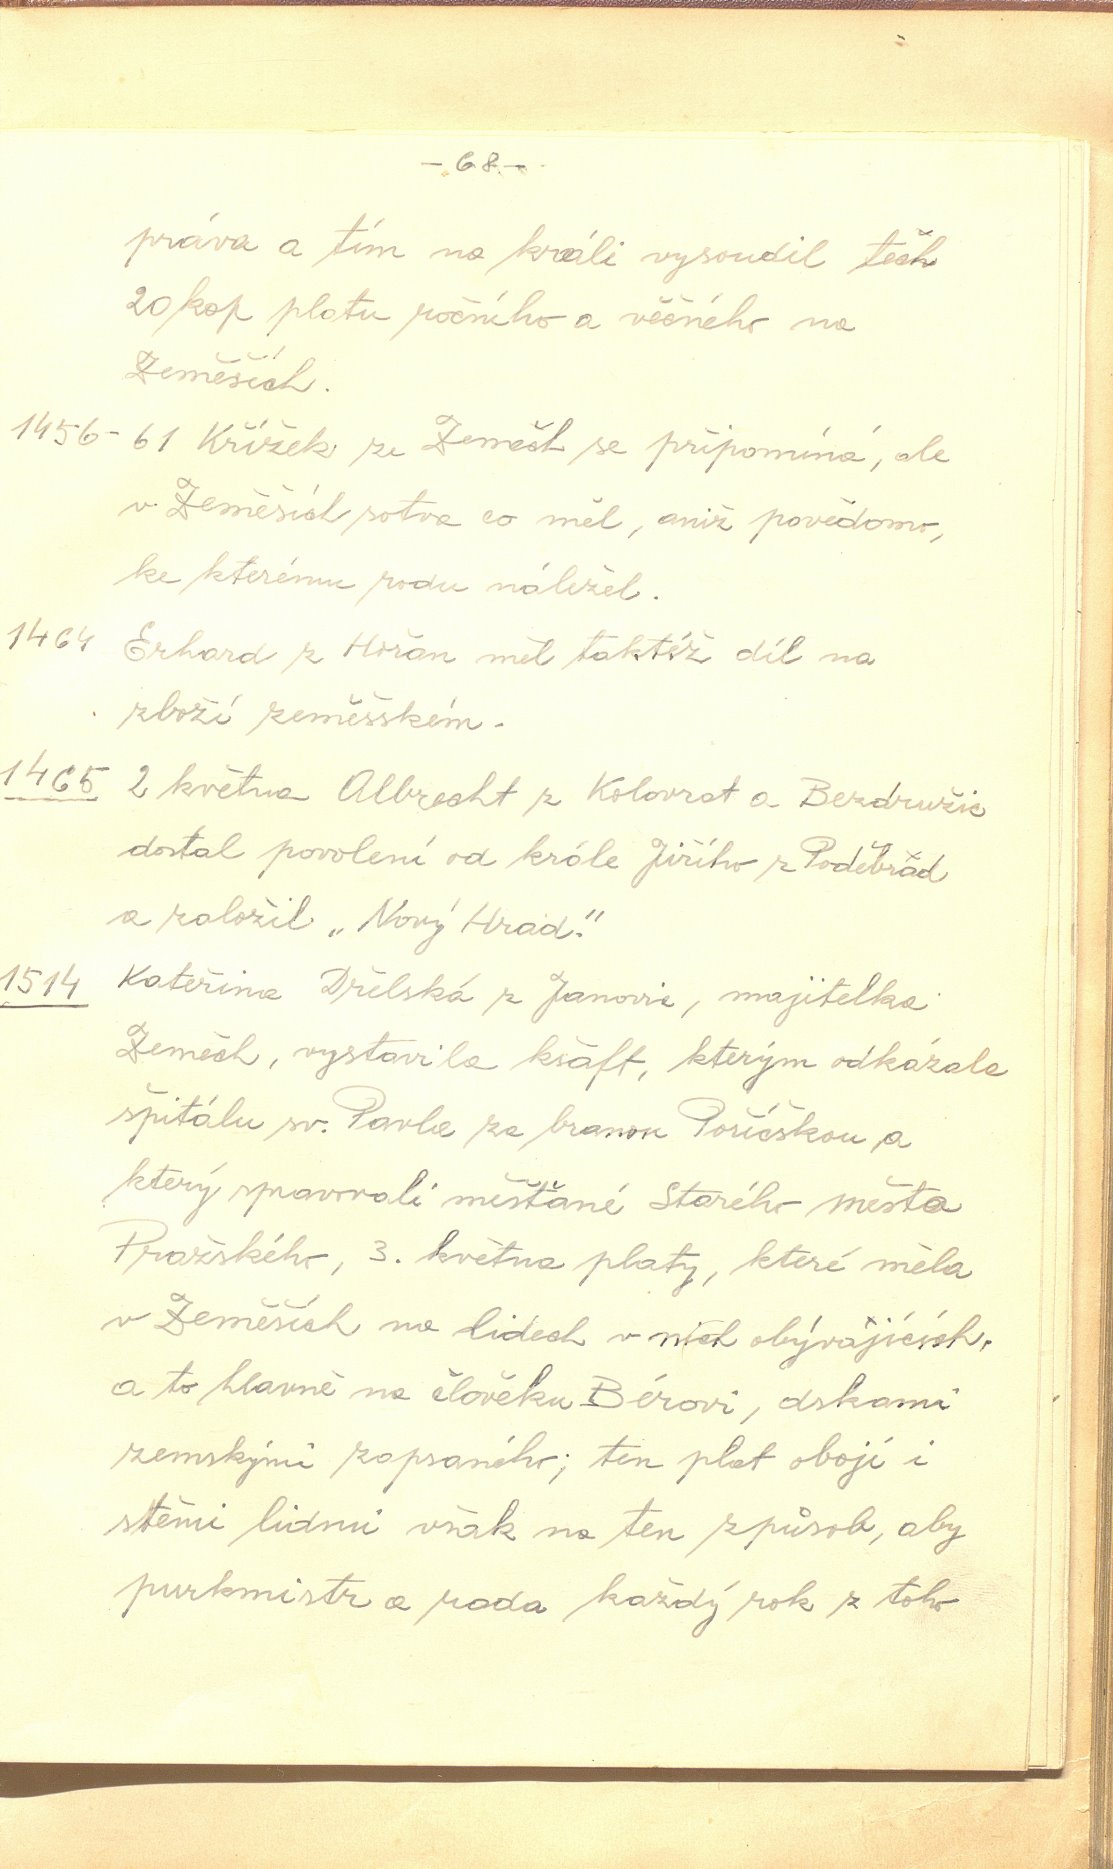 - 68 -
práva a tím na králi vysoudil těch
20 kop platu ročního a věčného na
Zeměších.
1456- 61 Křížek ze Zeměch se připomíná, ale
v Zeměších sotva co měl, aniž povědomo,
ke kterému rodu náležel.
1464 Erhard z Hořan měl taktéž díl na
zboží zeměšském.
1465 2 května Albrecht z Kolovrat a Bezdružic
dostal povolení od krále Jiřího z Poděbrad
a založil „Nový Hrad."
1514 Kateřina Držlská z Janovic, majitelka
Zeměch, vystavila kšaft, kterým odkázala
špitálu sv. Pavla za branou Poříčskou a
který spravovali měšťané Starého města
Pražského, 3. května platy, které měla
v Zeměších na lidech v nich obývajících,
a to hlavně na člověku Bérovi, dskami
zemskými zapsaného; ten plat obojí i
stěmi lidmi však na ten způsob, aby
purkmistr a rada každý rok z toho